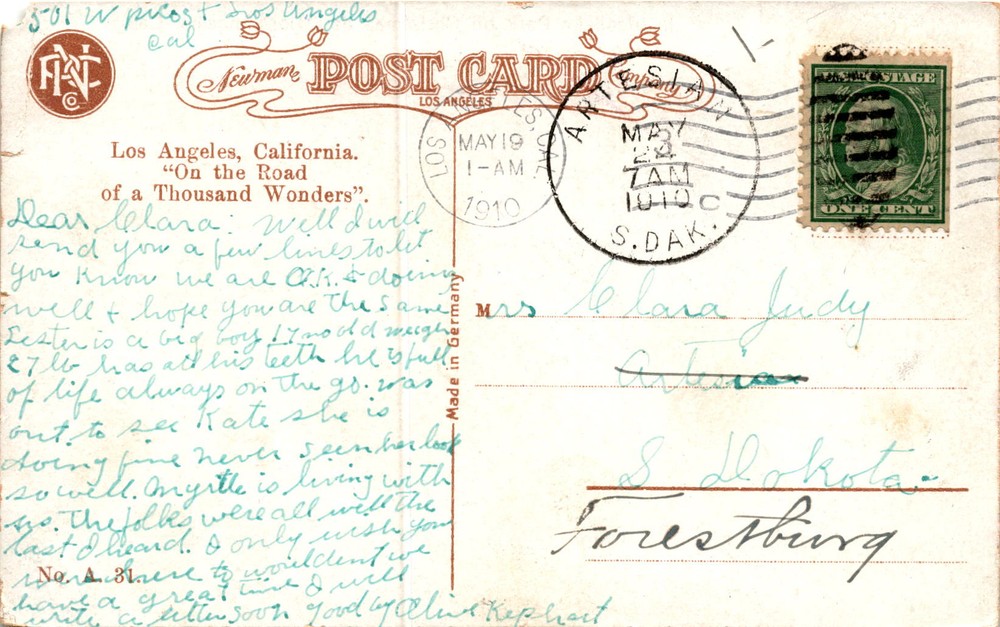 1501 W pico st Los Angeles
Cal
PNC
Co
Newman POST CARD Company
LOS ANGELES
LOS ANGELES, CAL.
MAY 19
1-AM
1910
ARTESIAN
MAY
24
7AM
1910 C
S. DAK.
POSTAGE
ONE CENT
Los Angeles, California.
"On the Road
of a Thousand Wonders".
Dear Clara: Well I will
send you a few lines to let
you know we are O.K. & doing
well & hope you are the same
Lester is a big boy 17 mo old weighs
27 lb has all his teeth he is full
of life always on the go. was
out to see Kate she is
doing fine never seen her look
so well. Myrtle is living with
us. The folks were all well the
last I heard. I only wish you
were here to wouldent we
have a great time I will
write a letter soon good by Alive Kephart
No. A. 31.
Made in Germany
Mrs Clara Judy
Artesian
S Dokota
Forestburg